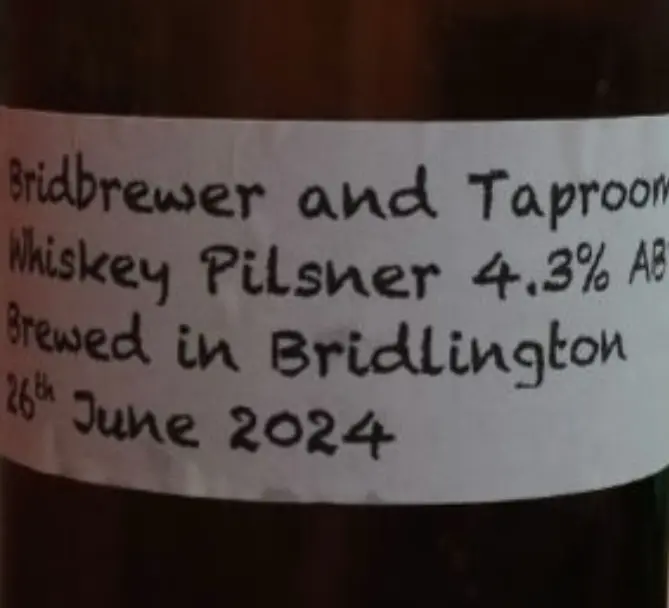 Bridbrewer and Taproom
Whiskey Pilsner 4.3% AB
Brewed in Bridlington
26th June 2024